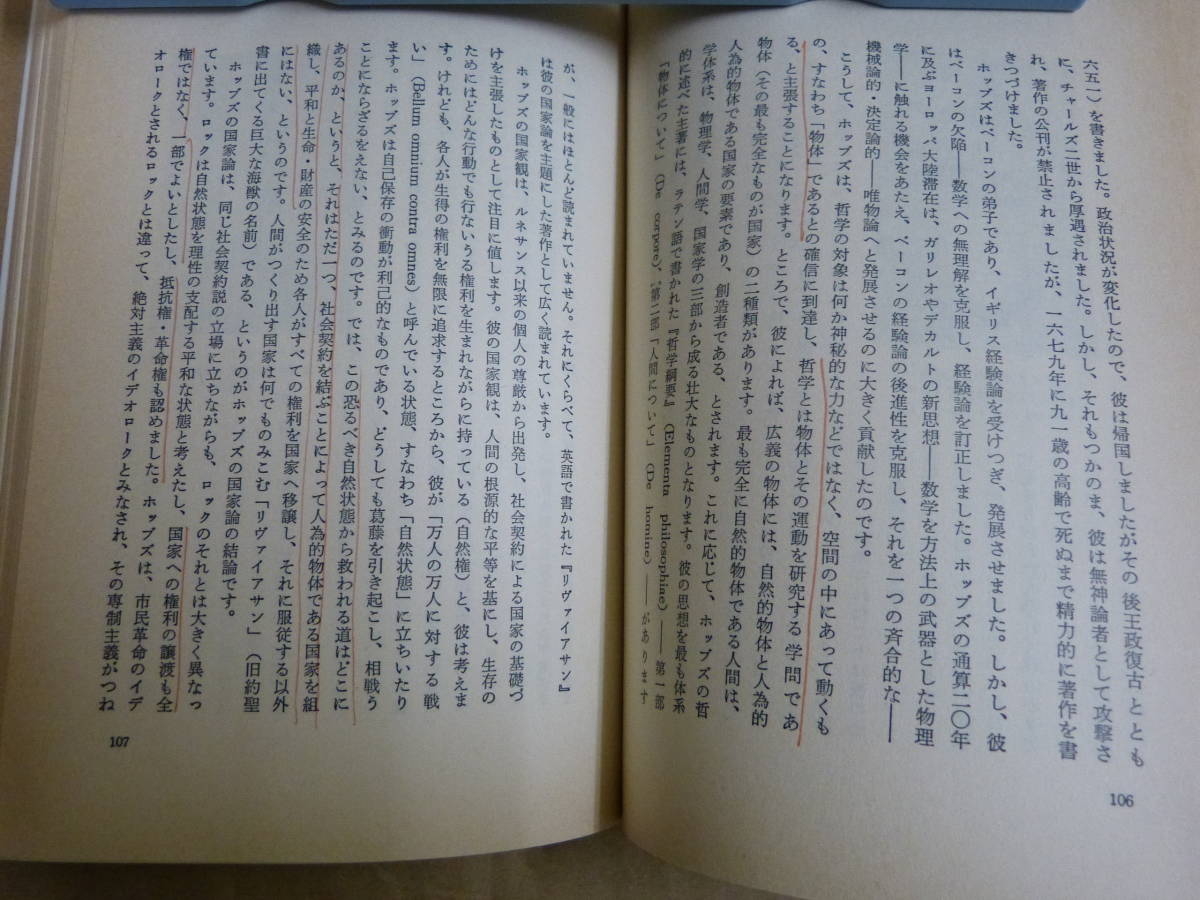 六五一)を書きました。政治状況が変化したので、彼は帰国しましたがその後王政復古ととも
に、チャールズ二世から厚遇されました。しかし、それもつかのま、彼は無神論者として攻撃さ
れ、著作の公刊が禁止されましたが、一六七九年に九一歳の高齢で死ぬまで精力的に著作を書
きつづけました。
ホッブズはベーコンの弟子であり、イギリス経験論を受けつぎ、発展させました。しかし、彼
はベーコンの欠陥――数学への無理解を克服し、経験論を訂正しました。ホッブズの通算二〇年
に及ぶヨーロッパ大陸滞在は、ガリレオやデカルトの新思想――数学を方法上の武器とした物理
学――に触れる機会をあたえ、ベーコンの経験論の後進性を克服し、それを一つの斉合的な――
機械論的・決定論的――唯物論へと発展させるのに大きく貢献したのです。
こうして、ホッブズは、哲学の対象は何か神秘的な力などではなく、空間の中にあって動くも
の、すなわち「物体」であるとの確信に到達し、哲学とは物体とその運動を研究する学問であ
る、と主張することになります。ところで、彼によれば、広義の物体には、自然的物体と人為的
物体(その最も完全なものが国家)の二種類があります。最も完全に自然的物体である人間は、
人為的物体である国家の要素であり、創造者である、とされます。これに応じて、ホッブズの哲
学体系は、物理学、人間学、国家学の三部から成る壮大なものとなります。彼の思想を最も体系
的に述べた主著には、ラテン語で書かれた『哲学綱要』(Elementa philosophiae)――第一部
『物体について』(De corpore)、第二部『人間について』(De homine)――があります
106
が、一般にはほとんど読まれていません。それにくらべて、英語で書かれた『リヴァイアサン』
は彼の国家論を主題にした著作として広く読まれています。
ホッブズの国家観は、ルネサンス以来の個人の尊厳から出発し、社会契約による国家の基礎づ
けを主張したものとして注目に値します。彼の国家観は、人間の根源的な平等を基にし、生存の
ためにはどんな行動でも行ないうる権利を生まれながらに持っている(自然権)と、彼は考えま
す。けれども、各人が生得の権利を無限に追求するところから、彼が「万人の万人に対する戦
い」(Bellum omnium contra omnes)と呼んでいる状態、すなわち「自然状態」に立ちいたり
ます。ホッブズは自己保存の衝動が利己的なものであり、どうしても葛藤を引き起こし、相戦う
ことにならざるをえない、とみるのです。では、この恐るべき自然状態から救われる道はどこに
あるのか、というと、それはただ一つ、社会契約を結ぶことによって人為的物体である国家を組
織し、平和と生命・財産の安全のため各人がすべての権利を国家へ移譲し、それに服従する以外
にはない、というのです。人間がつくり出す国家は何でものみこむ「リヴァイアサン」(旧約聖
書に出てくる巨大な海獣の名前)である、というのがホッブズの国家論の結論です。
ホッブズの国家論は、同じ社会契約説の立場に立ちながらも、ロックのそれとは大きく異なっ
ています。ロックは自然状態を理性の支配する平和な状態と考えたし、国家への権利の譲渡も全
権ではなく、一部でよいとしたし、抵抗権・革命権も認めました。ホッブズは、市民革命のイデ
オローグとされるロックとは違って、絶対主義のイデオローグとみなされ、その専制主義がつね
107